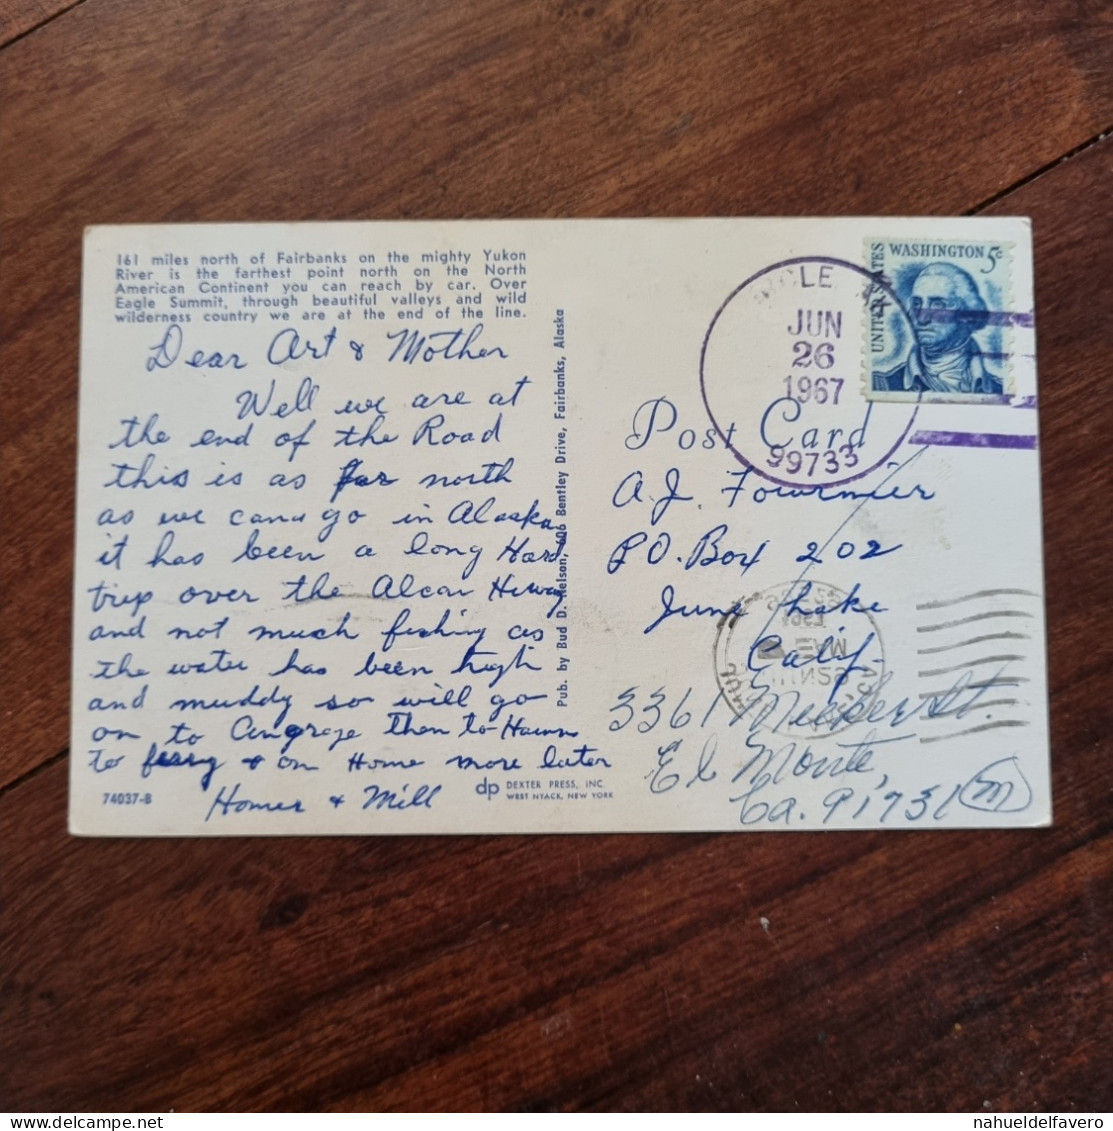 161 miles north of Fairbanks on the mighty Yukon
River is the farthest point north on the North
American Continent you can reach by car. Over
Eagle Summit, through beautiful valleys and wild
wilderness country we are at the end of the line.
Dear Art & Mother
Well we are at
the end of the Road
this is as far north
as we can go in Alaska
it has been a long Hard
trip over the Alcan Hiway
and not much fishing as
the water has been high
and muddy so will go
on to then to
to ferry & on Home more later
Homer & Mill
74037-B
Pub. by Bud D. Nelson, 606 Bentley Drive, Fairbanks, Alaska
dp DEXTER PRESS, INC.
WEST NYACK, NEW YORK
UNITED STATES
WASHINGTON 5c
CLE
JUN
26
1967
99733
Post Card
A.J. Fournier
P.O. Box 202
June Lake
Calif.
3361 St.
El Monte,
Ca. 91731 m
nahueldelfavero